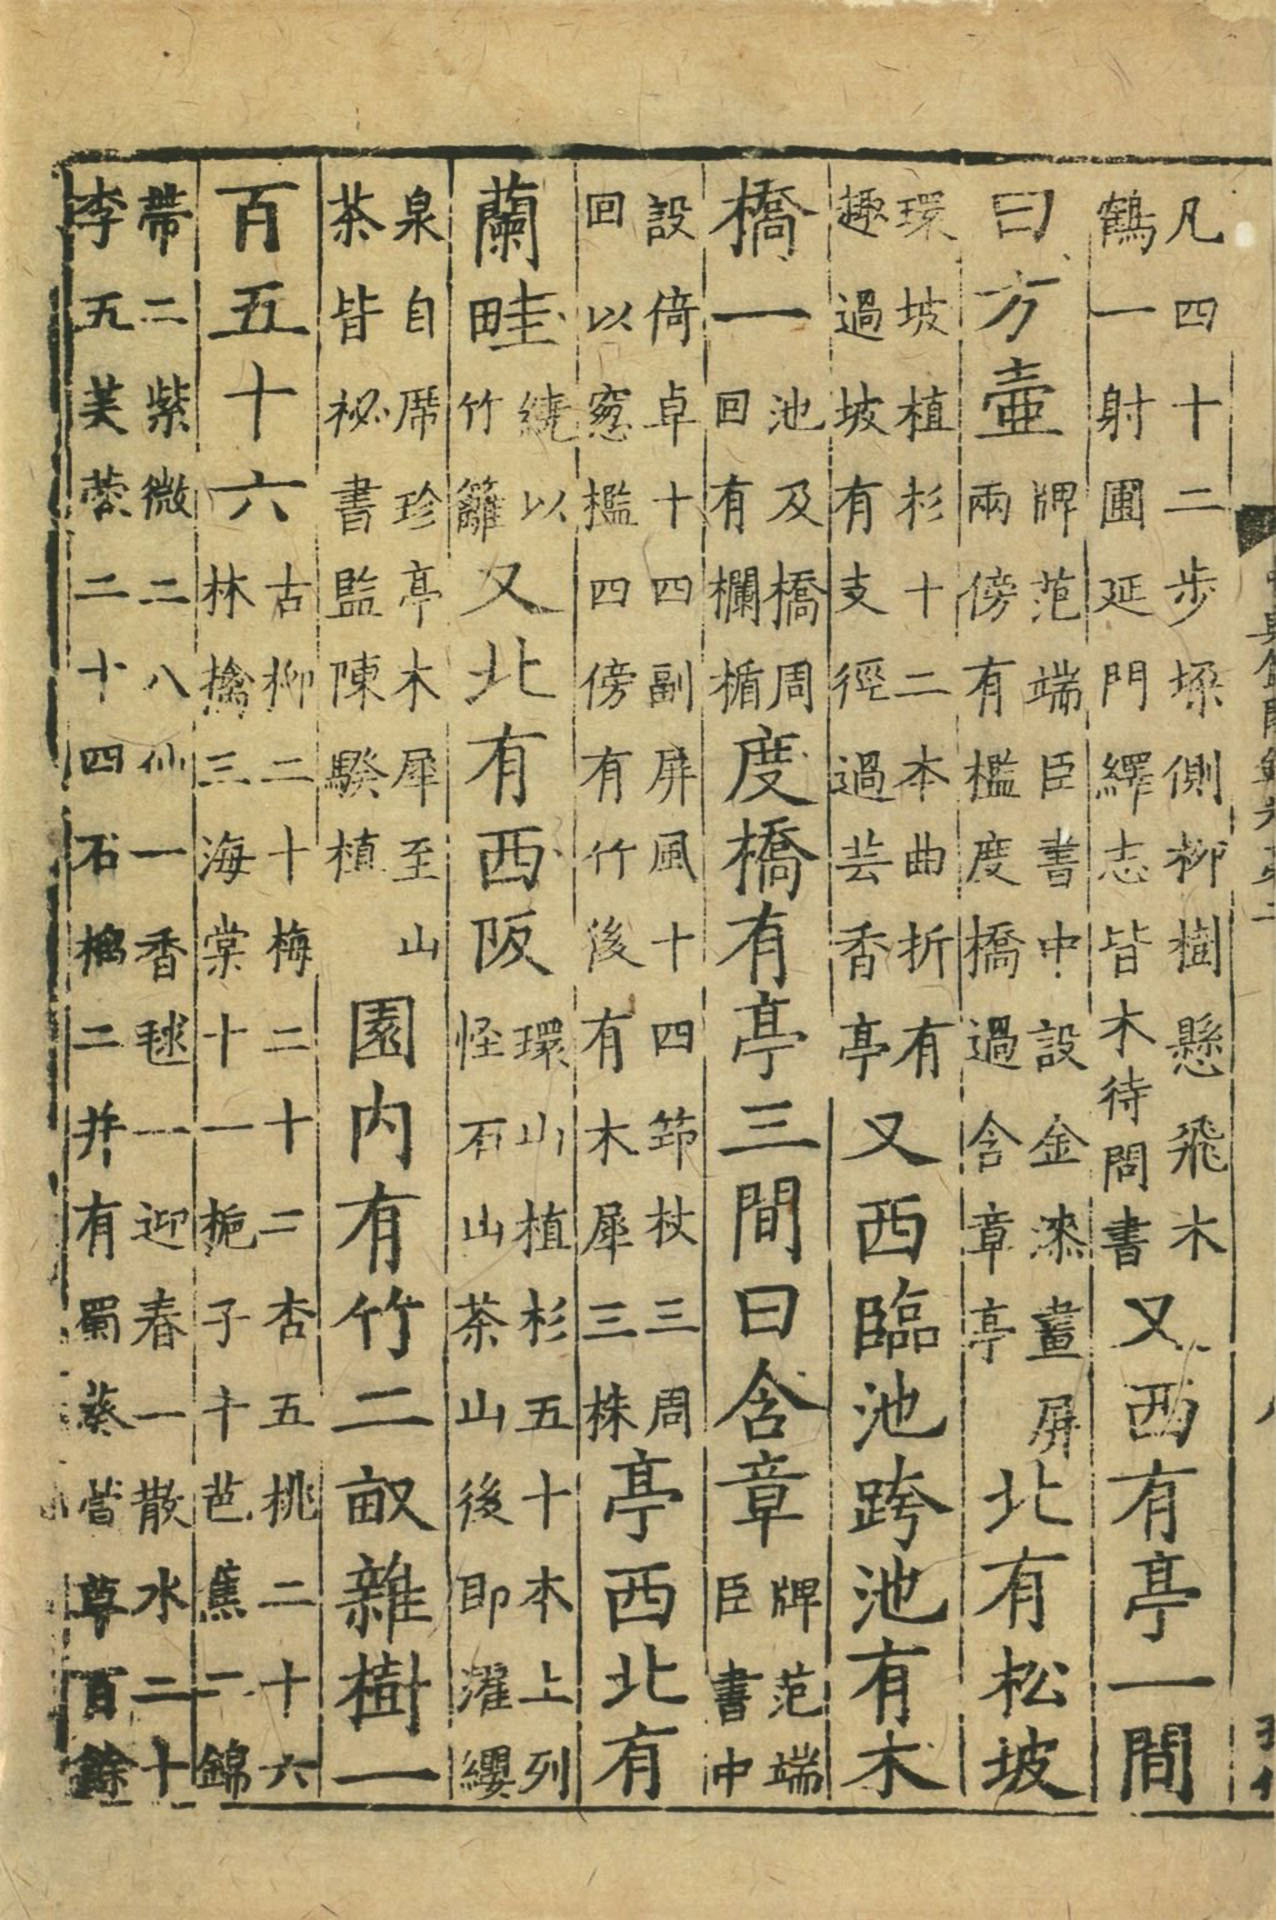 凡四十二步垜側柳樹懸飛木鶴一射圃延門繹志皆木待問書又西有亭一間
曰方壺牌范端臣書中設金漆畫屏兩傍有檻度橋過含章亭北有松坡
環坡植杉十二本曲折有趣過坡有支徑過芸香亭又西臨池跨池有木
橋一池及橋周回有欄楯度橋有亭三間曰含章牌范端臣書中
設倚卓十四副屏風十四笻杖三周回以窓檻四傍有竹後有木犀三株亭西北有
蘭畦繞以竹籬又北有西阪環山植杉五十本上列怪石山茶山後即濯纓
泉自席珍亭木犀至山茶皆祕書監陳騤植園内有竹二畝雜樹一
百五十六古柳二十梅二十二杏五桃二十六林檎三海棠十一梔子十芭蕉一錦
帶二紫微二八仙一香毬一迎春一散水二十李五芙蓉二十四石榴二并有蜀葵百餘